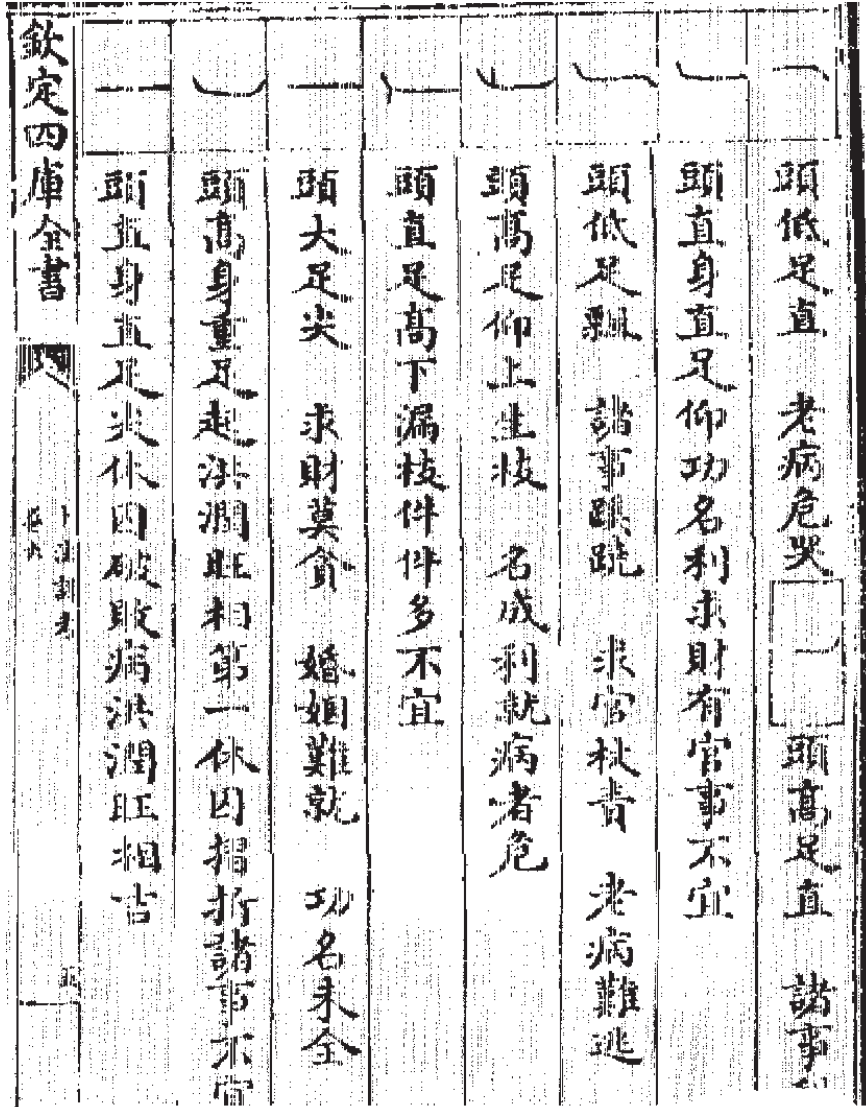 頭低足直　老病危哭　頭高足直　諸事
頭直身直足仰功名利求財有官事不宜
頭低足飄　諸事蹺蹊　求官杖責　老病難逃
頭高足仰上生枝　名成利就病者危
頭直足高下漏枝件件多不宜
頭大足尖　求財莫貪　婚姻難就　功名未全
頭高身重足起洪潤旺相第一休囚摺折諸事不宜
頭直身直足尖休囚破敗病洪潤旺相吉
欽定四庫全書
卜法詳考
卷六